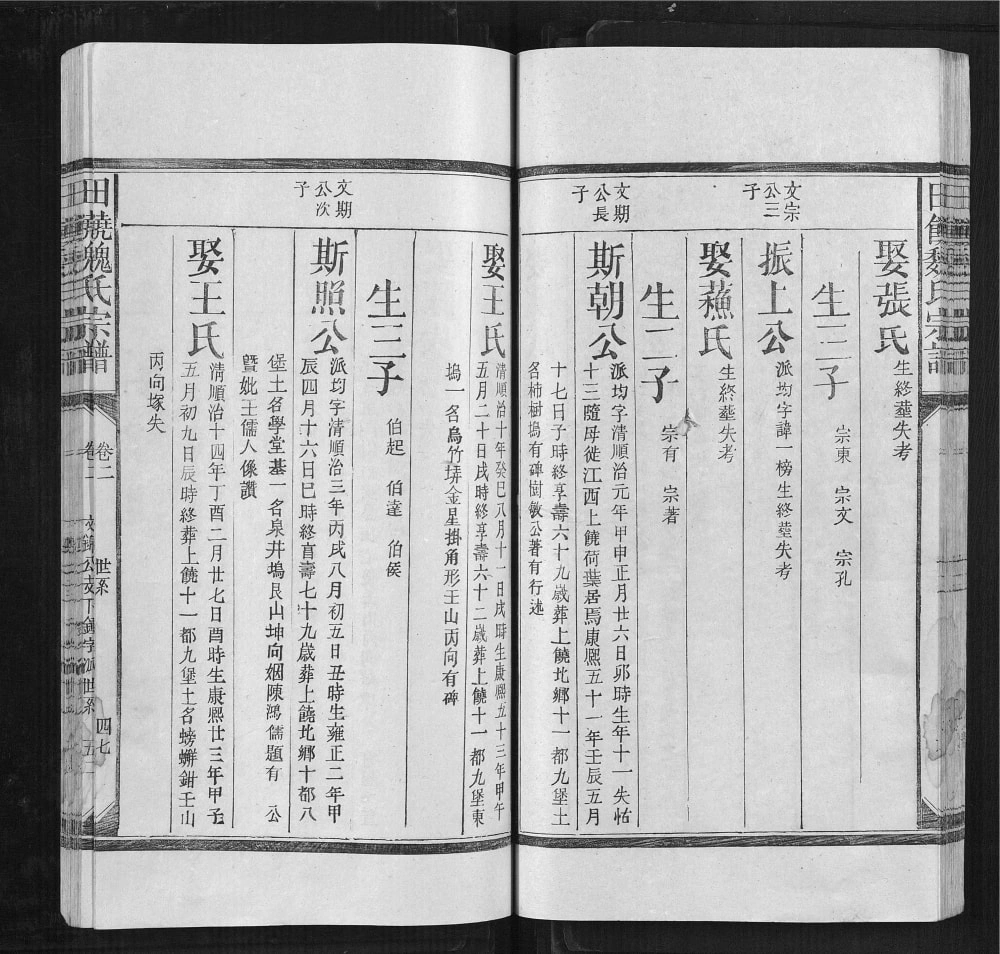 娶張氏
生終塟失考
生三子
宗東 宗文 宗孔
文宗
公三
子
振上公
派均字諱一榜生終塟失考
娶蘓氏
生終塟失考
生二子
宗有 宗著
文期
公長
子
斯朝公
派均字清順治元年甲申正月廿六日卯時生年十一失怙
十三隨母徙江西上饒荷葉居焉康熙五十一年壬辰五月
十七日子時終享壽六十九歲葬上饒北鄉十一都九堡土
名柿樹塢有碑樹敏公著有行述
娶王氏
清順治十年癸巳八月十一日戌時生康熙五十三年甲午
五月二十日戌時終享壽六十二歲葬上饒十一都九堡東
塢一名烏竹垪金星掛角形壬山丙向有碑
生三子
伯起 伯達 伯侯
文期
公次
子
斯照公
派均字清順治三年丙戌八月初五日丑時生雍正二年甲
辰四月十六日巳時終享壽七十九歲葬上饒北鄉十都八
堡土名學堂基一名泉井塢艮山坤向姻陳鴻儒題有 公
暨妣王儒人係讚
娶王氏
清順治十四年丁酉二月廿七日酉時生康熙廿三年甲子
五月初九日辰時終葬上饒十一都九堡土名螃蠏鉗壬山
丙向塚失
田蕘魏氏宗譜
卷二
世系
四七